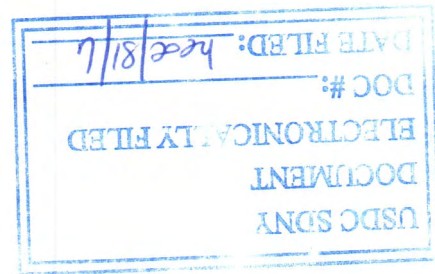 USDC SDNY
DOCUMENT
ELECTRONICALLY FILED
DOC #:
DATE FILED: